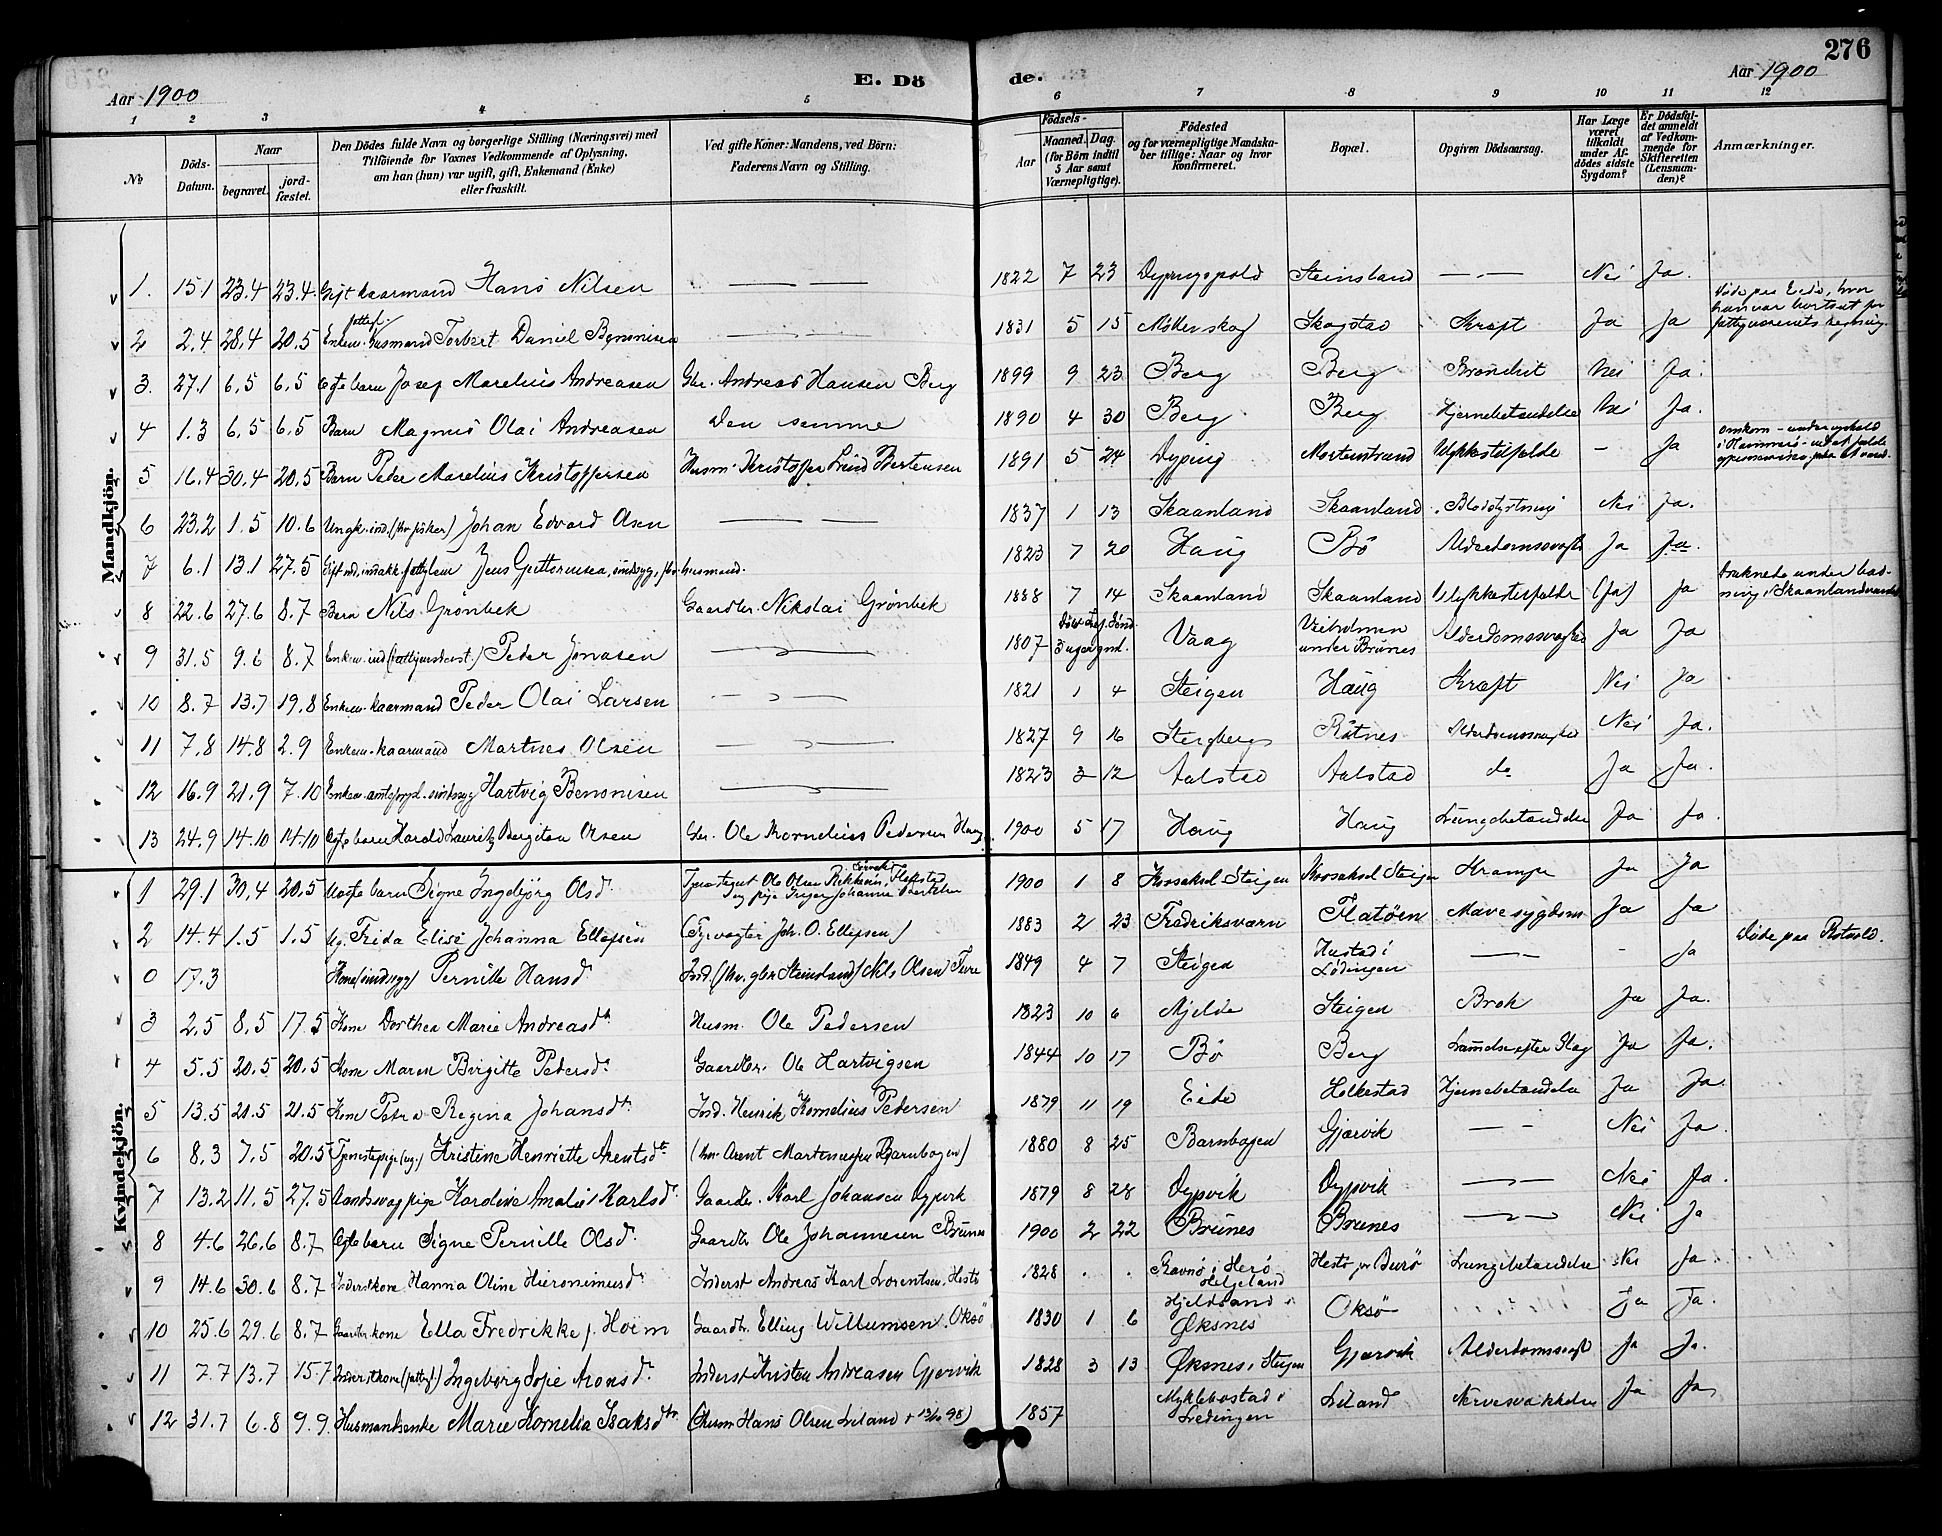 276
E. Dö de.
Aar 1900
Aar 1900
1 2 3 4 5 6 7 8 9 10 11 12
№
Döds-Datum.
Naar
begravet.
jord-fæstet.
Den Dödes fulde Navn og borgerlige Stilling (Næringsvei) med
Tilföiende for Voxnes Vedkommende af Oplysning,
om han (hun) var ugift, gift, Enkemand (Enke)
eller fraskilt.
Ved gifte Koner: Mandens, ved Börn:
Faderens Navn og Stilling.
Födsels-
Aar
Maaned. Dag.
(for Börn indtil
5 Aar samt
Værnepligtige).
Födested
og for værnepligtige Mandska-
ber tillige: Naar og hvor
konfirmeret.
Bopæl.
Opgiven Dödsaarsag.
Har Læge
været
tilkaldt
under Af-
dödes sidste
Sygdom?
Er Dödsfal-
det anmeldt
af Vedkom-
mende for
Skifteretten
(Lensman-
den)?
Anmærkninger.
Mandkjön.
1. 15.1 23.4 23.4 Gift kaarmand Hans Nilsen 1822 7 23 Steinsland Nei Ja.
2 2.4 28.4 20.5 Enkem. husmand Torbert Daniel Benonisen 1831 5 15 Skogstad Kræft Ja Ja
Döde paa Eide, hvor
han var bortsat for
fattigvæsenets regning.
3. 27.1 6.5 6.5 Egte barn Josef Marelius Andreasen Gbr. Andreas Hansen Berg 1899 9 23 Berg Berg Bronchit Nei Ja.
4 1.3 6.5 6.5 Barn Magnus Olai Andreasen Den samme 1890 4 30 Berg Berg Hjernebetændelse Nei Ja.
5 16.4 30.4 20.5 Barn Peder Marelius Kristoffersen Husm. Kristoffer Lund Bertensen 1891 5 24 Dyping Mortenstrand Ulykkestilfælde - Ja
6 23.2 1.5 10.6 Ungk. ind. (fhv fisker) Johan Edvard Olsen 1837 1 13 Skaanland Skaanland Blodstyrtning Nei Ja.
7 6.1 13.1 27.5 Jens Guttormsen, sindssyg, fhv. husmand. 1823 7 20 Haug Bö Alderdomssvaghed Ja Ja.
8 22.6 27.6 8.7 Barn Nils Grönbek Gaardbr. Nikolai Grönbek 1888 7 14 Skaanland Skaanland Ulykkestilfælde (Ja) Ja
Druknede under bad-
ning i Skaanlandvandet
9 31.5 9.6 8.7 Enkem. ind. Peder Jonasen 1807 3 uger gml. Vaag Veiholmen under Brünes Alderdomssvaghed Ja Ja
10 8.7 13.7 19.8 Enkem. kaarmand Peder Olai Larsen 1821 1 4 Steigen Haug Kræft Nei Ja
11 7.8 14.8 2.9 Enkem. kaarmand Martnes Olsen 1827 9 16 Stegberg Rötnes Alderdomssvaghed Nei Ja.
12 16.9 21.9 7.10 Enkem. sindssyg Hartvig Benonisen 1823 3 12 Aalstad Aalstad do Ja Ja.
13 24.9 14.10 14.10 Egte barn Harald Lauritz Bergiton Olsen Gbr. Ole Kornelius Pedersen Haug 1900 5 17 Haug Haug Lungebetændelse Ja Ja.
Kvindekjön.
1 29.1 30.4 20.5 Uegte barn Signe Ingebjörg Olsd. 1900 1 8 Skosaksel Steigen Krampe Ja Ja
2 14.4 1.5 1.5 Ug. Frida Elise Johanna Ellefsen (Fyrvogter Joh. O. Ellefsen) 1883 2 23 Fredriksværn Flatöen Mavesygdom Ja Ja
0 17.3 Kone (sindssyg) Pernille Hansd. Ind. (fhv. gbr Steinsland) Nils Olsen 1849 4 7 Steigen Hustad i Lödingen - Ja
Döde paa Rotvold.
3 2.5 8.5 17.5 Kone Dorthea Marie Andreasdtr Husm. Ole Pedersen 1823 10 6 Mjelde Steigen Brok Ja Ja.
4 5.5 20.5 20.5 Kone Maren Birgitte Pedersd. Gaardbr. Ole Hartvigsen 1844 10 17 Bö Berg Lamelse efter Slag Ja Ja.
5 13.5 21.5 21.5 Kone Petra Regina Johansdtr Ind. Henrik Kornelius Pedersen 1879 11 19 Eide Holkestad Hjernebetændelse Ja Ja.
6 8.3 7.5 20.5 Tjenestepige (ug.) Kristine Henriette Arentsdtr (hm. Arent Martinussen Barnhogen) 1880 8 25 Barnhogen Gjærvik Nei Ja.
7 13.2 11.5 27.5 Karoline Amalie Karlsd. Gaardbr. Karl Johansen Dypvik 1879 8 28 Dypvik Dypvik Nei Ja.
8 4.6 26.6 8.7 Egte barn Signe Pernille Olsd. Gaardbr Ole Johannesen Brunes 1900 2 22 Brunes Brunes Nei Ja
9 14.6 30.6 8.7 Inderstkone Hanna Oline Hieronimusd. Inderst Andreas Karl Lorentsen. Hestö 1828 . . Ravnö i Herö Helgeland Hestö pr Burö Lungebetændelse Nei Ja
10 25.6 29.6 8.7 Gaardbr.kone Ella Fredrikke f. Hoim Gaardbr. Elling Willumsen Oksö 1830 1 6 Hjeldsand i Øksnes Oksö Ja Ja.
11 7.7 13.7 15.7 Inderstkone (fattigf.) Ingeborg Sofie Aronsd. Inderst Kristen Andreasen Gjærvik 1828 3 13 Øksnes i Steigen Gjærvik Alderdomssvagh Ja Ja.
12 31.7 6.8 9.9 Husmandsenke Marie Kornelia Isaksdtr (Husm Hans Olsen Leland + 98) 1857 Myklebostad i Lödingen Leland Nervesvækkelse Ja Ja